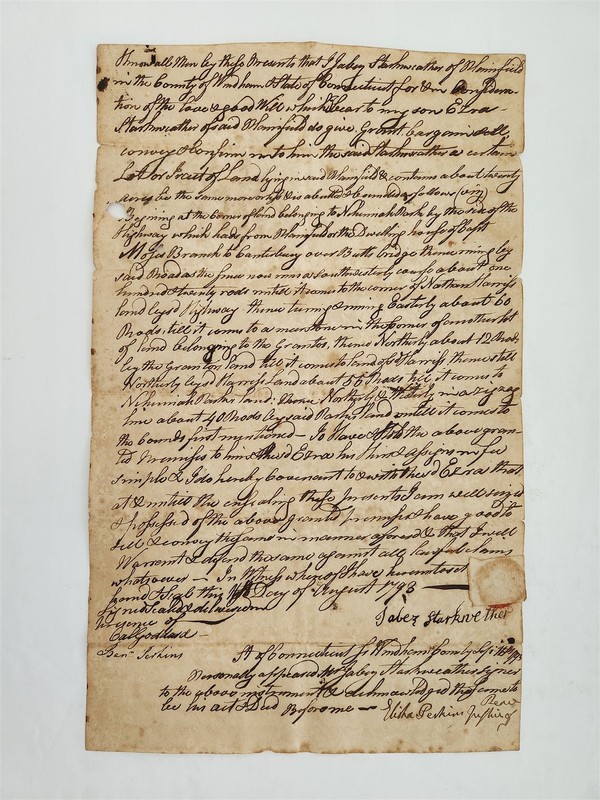 Know all Men by these Presents that I Jabez Starkweather of Plainfield
in the County of Windham & State of Connecticut for & in Considera-
tion of the love & good Will which I bear to my son Ezra
Starkweather of said Plainfield do give, Grant, bargain sell,
convey & Confirm unto him the said Starkweather a certain
Lot or Tract of Land lying in said Plainfield & contains about twenty
acres be the same more or less & is abutted & bounded as follows (viz)
Begining at the Corner of land belonging to Nehemiah Park by the side of the
Highway which leads from Plainfield or the Dwelling house of Capt
Moses Branch to Canterbury over Butts bridge thence runing by
said Road as the fence now runs a southwesterly course about one
hundred & twenty rods until it comes to the corner of Nathan Harris's
land by sd Highway thence turning & runing Easterly about 60
Rods till it comes to a mearstone in the corner of another lot
of land belonging to the Grantor, thence Northerly about 12 Rods
by the Grantors land till it comes to land of sd Harriss, thence still
Northerly by sd Harriss Land about 56 Rods till it comes to
Nehemiah Parks land; thence Northerly & Westerly in a zigzag
line about 40 Rods by said Parks land untill it comes to
the bounds first mentioned — To Have & Hold the above gran-
ted Premises to him the sd Ezra his Heirs & assigns in fee
simple & I do hereby Covenant to & with the sd Ezra that
at & untill the ensealing these presents I am well seized
& possessed of the above granted premises & have good
to sell & convey the same in manner aforesd & that I will
Warrant & defend the same against all lawful claims
whatsoever — In Witness whereof I have hereunto set
hand & Seal this Day of August 1793
Signed sealed & delivered in
presence of
Jabez Starkwether
Goddard
Benn Perkins
St of Connecticut Ss Windham County 1793
Personally appeared Mr Jabez Starkweather signer
to the above instrument & acknowledged the same to
be his act & Deed Before me — Elisha Perkins Justice of
Peace